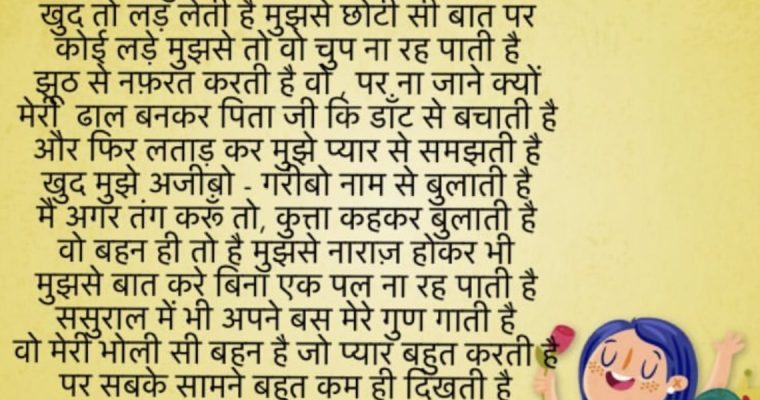 खुद तो लड़ लेती है मुझसे छोटी सी बात पर
कोई लड़े मुझसे तो वो चुप ना रह पाती है
झूठ से नफ़रत करती है वो , पर ना जाने क्यों
मेरी ढाल बनकर पिता जी कि डाँट से बचाती है
और फिर लताड़ कर मुझे प्यार से समझती है
खुद मुझे अजीबो - गरीबो नाम से बुलाती है
मैं अगर तंग करूँ तो, कुत्ता कहकर बुलाती है
वो बहन ही तो है मुझसे नाराज़ होकर भी
मुझसे बात करे बिना एक पल ना रह पाती है
ससुराल में भी अपने बस मेरे गुण गाती है
वो मेरी भोली सी बहन है जो प्यार बहुत करती है
पर सबके सामने बहुत कम ही दिखती है